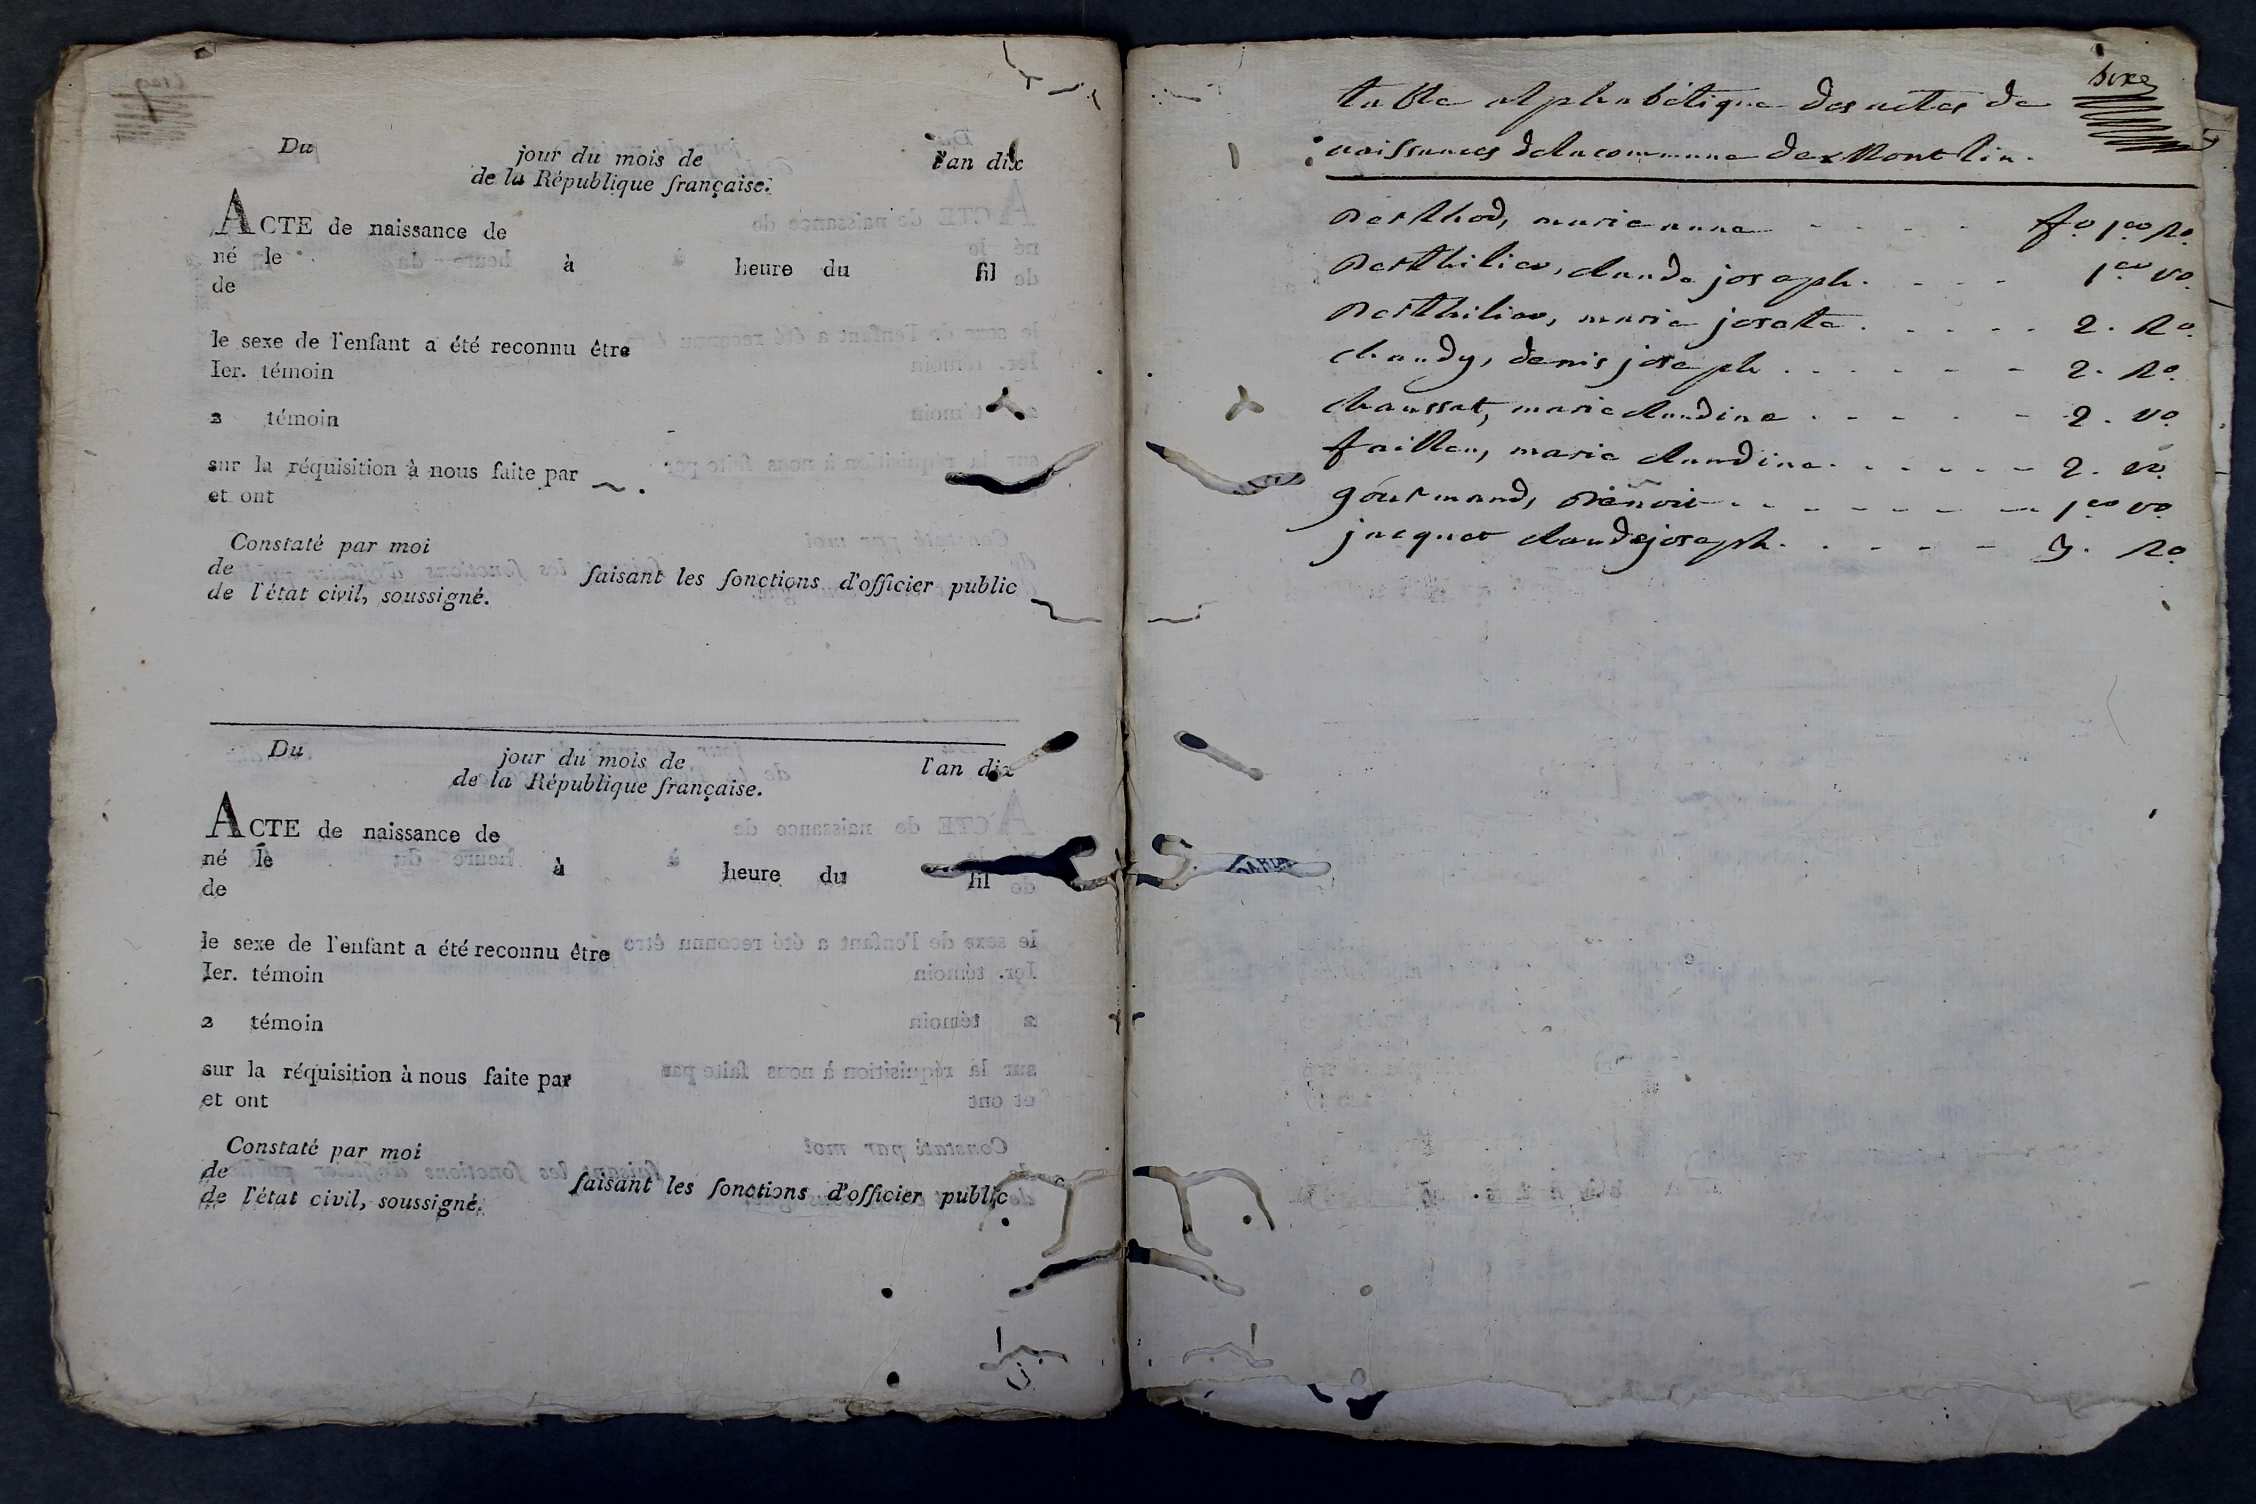 Du jour du mois de l'an dix
de la République française.
ACTE de naissance de
né le à heure du fil
de
le sexe de l'enfant a été reconnu être
Ier. témoin
2 témoin
sur la réquisition à nous faite par
et ont
Constaté par moi
de faisant les fonctions d'officier public
de l'état civil, soussigné.
Du jour du mois de l'an dix
de la République française.
ACTE de naissance de
né le à heure du fil
de
le sexe de l'enfant a été reconnu être
Ier. témoin
2 témoin
sur la réquisition à nous faite par
et ont
Constaté par moi
de faisant les fonctions d'officier public
de l'état civil, soussigné.
table alphabétique des actes de
naissances de la commune de Montlin.
Berthod, marie anne - - - - - fo. 1er Ro.
Berthilier, claude joseph. - - - - 1er vo.
Berthilier, marie josete. - - - - - 2. Ro.
chaudy, denis joseph - - - - - - 2. Ro.
chaussat, marie claudine - - - - - 2. vo.
marie claudine - - - - - - 2. vo.
gourmand, Benoit - - - - - - - 1er vo.
jacquet claude joseph. - - - - - 3. Ro.